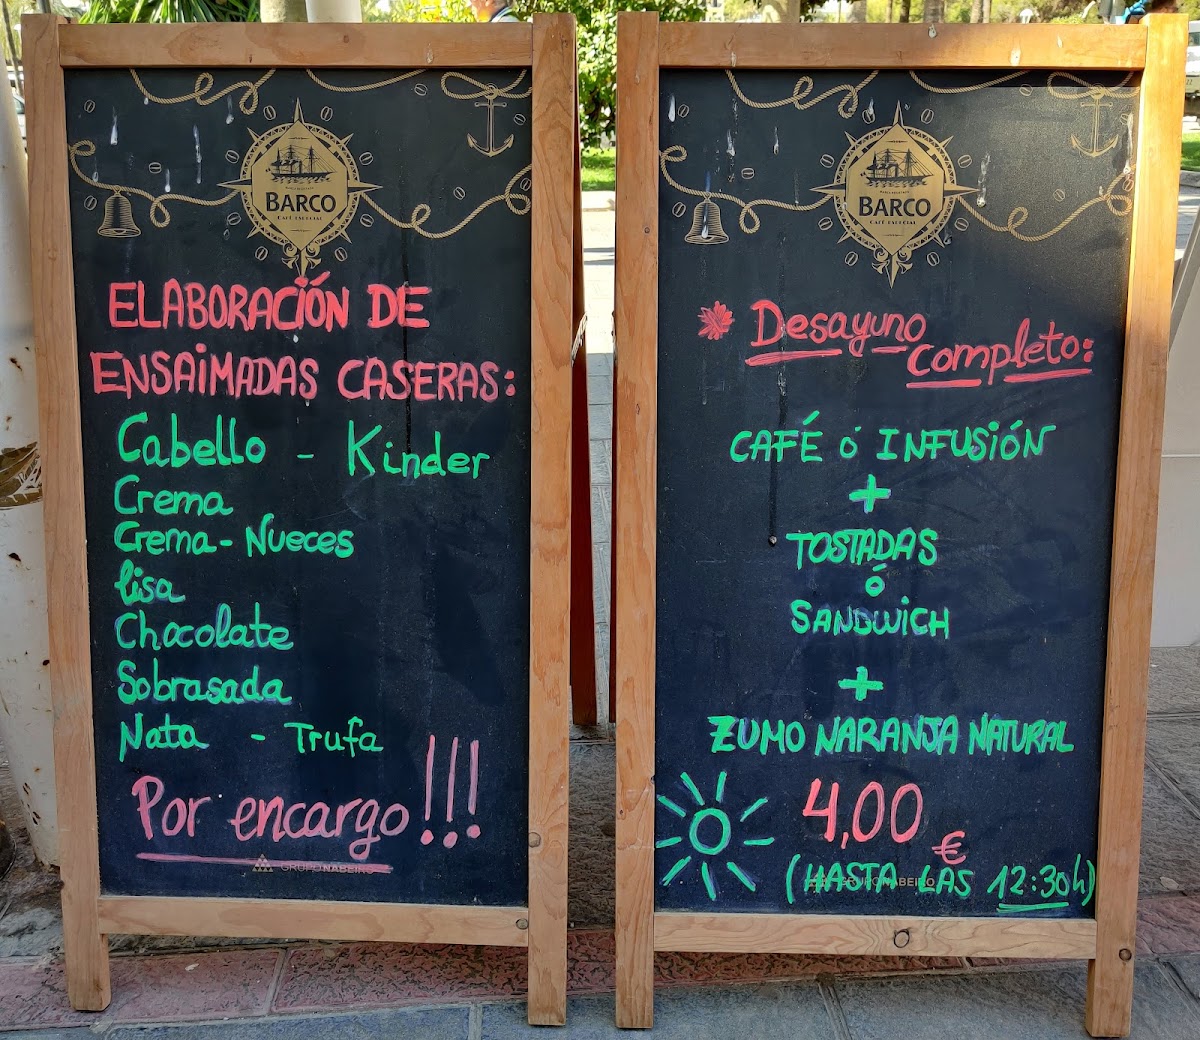 BARCO
CAFÉ ESPECIAL
ELABORACIÓN DE
ENSAIMADAS CASERAS:
Cabello - Kinder
Crema
Crema - Nueces
lisa
Chocolate
Sobrasada
Nata - Trufa
Por encargo!!!
GRUPONABEIRO
BARCO
CAFÉ ESPECIAL
* Desayuno
completo:
CAFÉ ó INFUSIÓN
+
TOSTADAS
ó
SANDWICH
+
ZUMO NARANJA NATURAL
4,00 €
(HASTA LAS 12:30h)
GRUPONABEIRO